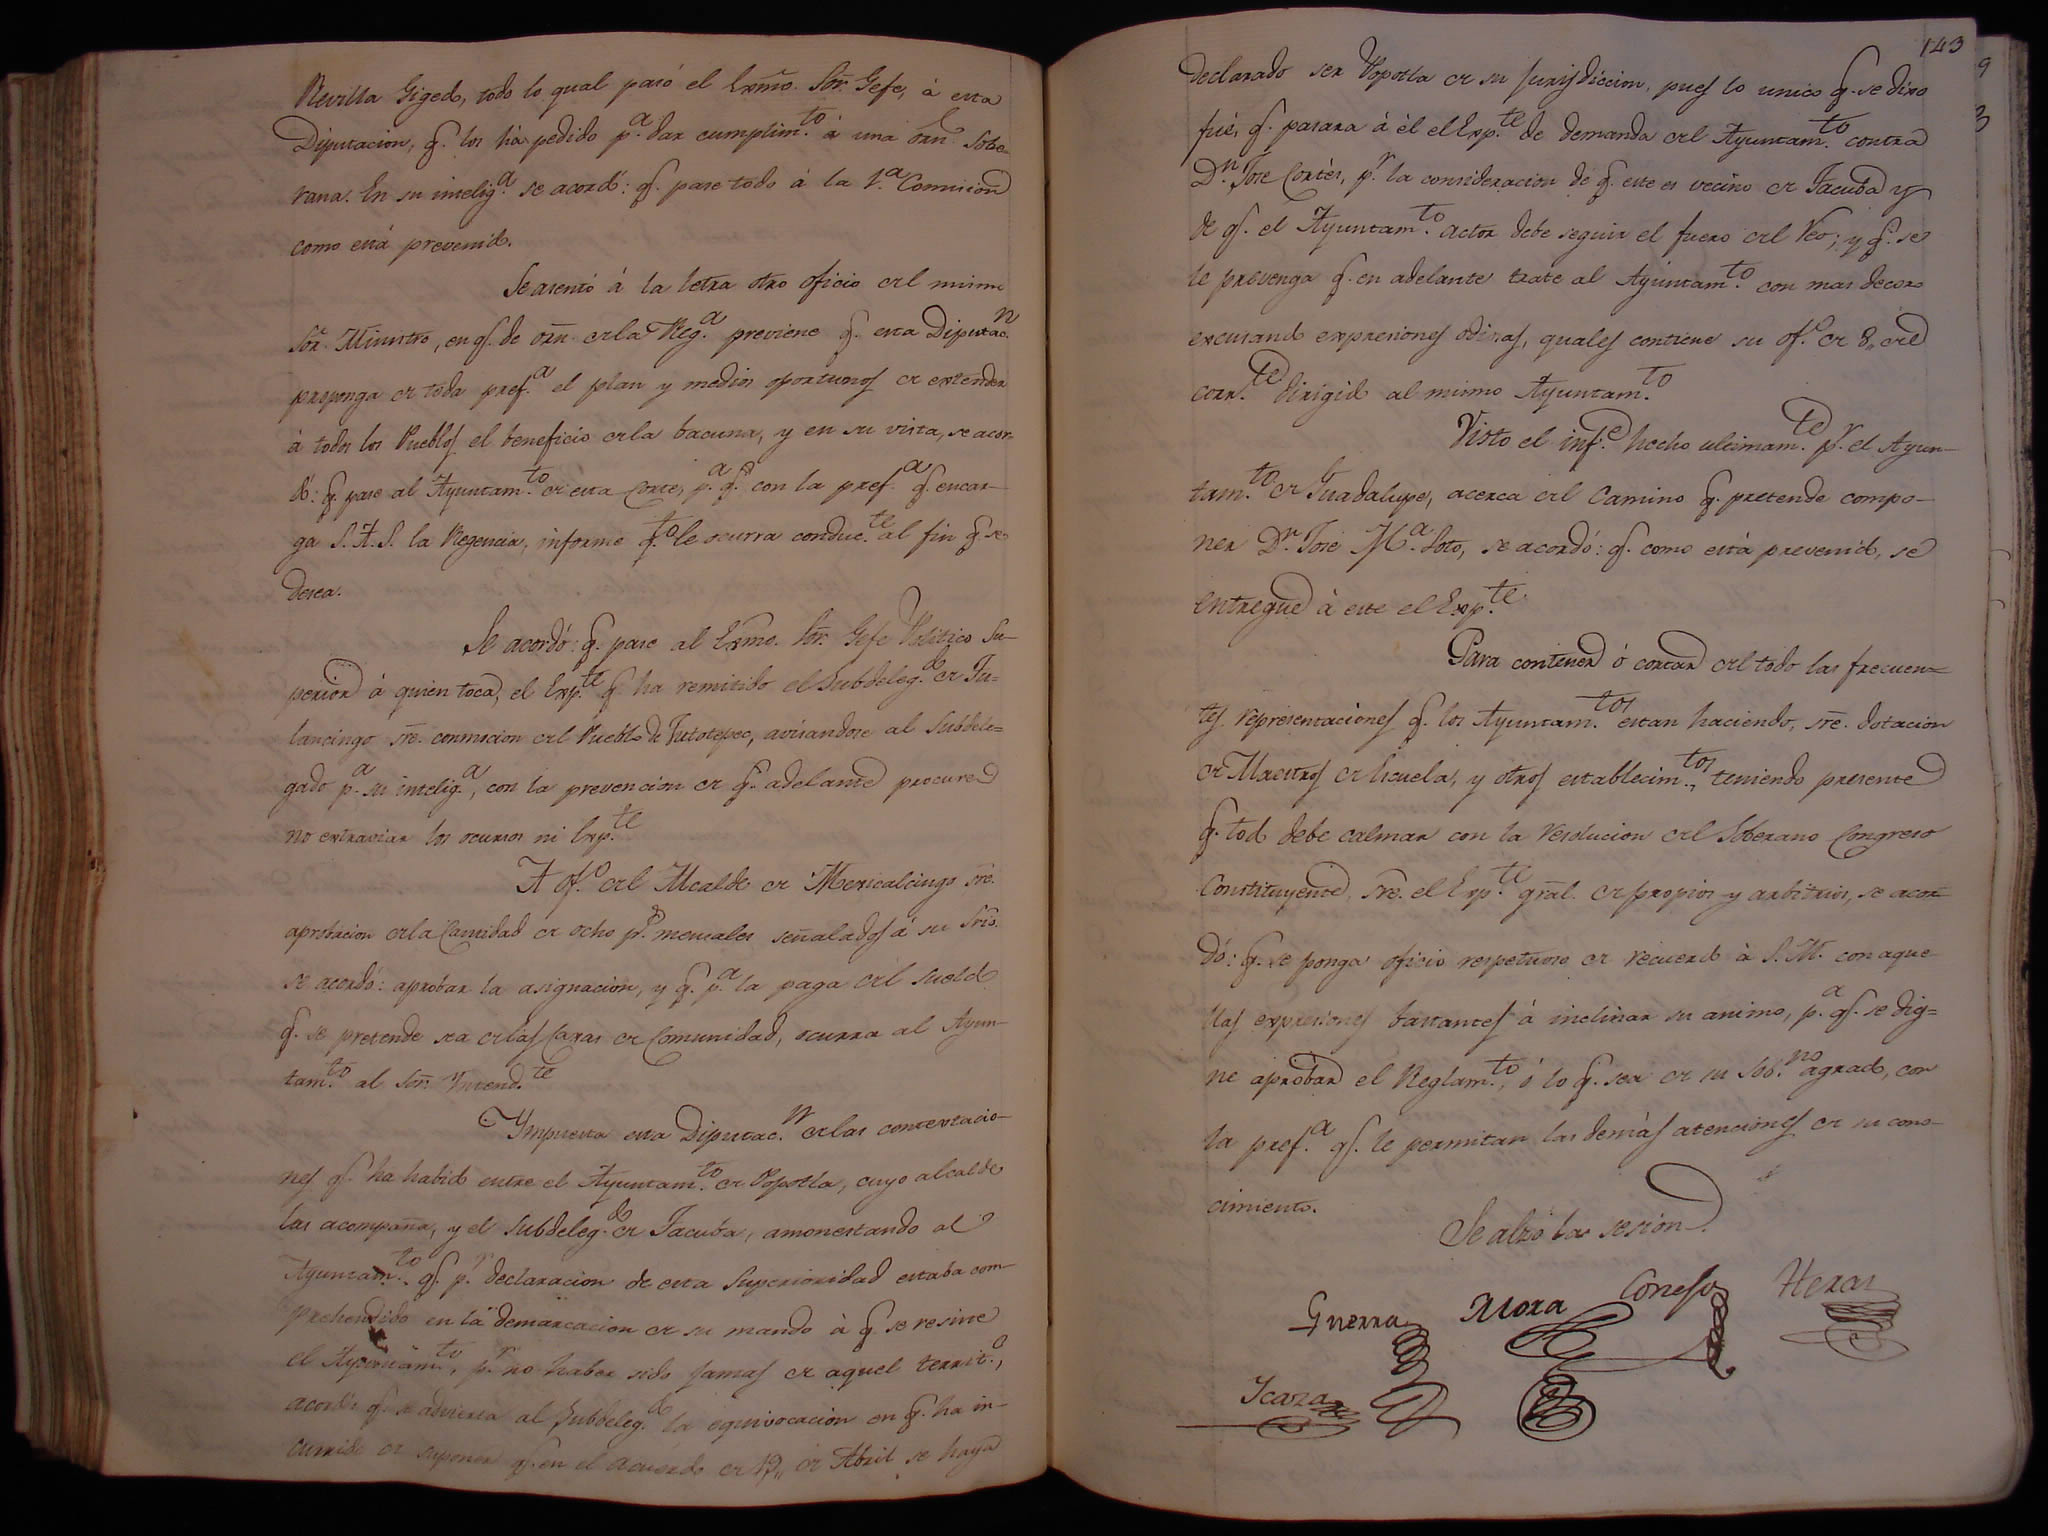 Revilla Gigedo, todo lo qual pasó el Exmo. Sor. Gefe, á esta
Diputacion, q. los há pedido p.a dar cumplim.to á una orn. Sobe-
rana. En su intelig.a se acordó: q. pase todo á la 1.a Comision
como está prevenido.
Se asentó á la letra otro oficio del mismo
Sor. Ministro, en q. de orn. de la Reg.a previene q. esta Diputac.n
proponga de toda pref.a el plan y medios oportunos de extender
á todos los Pueblos el beneficio de la bacuna, y en su vista, se acor-
dó: q. pase al Ayuntam.to de esta Corte, p.a q. con la pref.a q. encar-
ga S. A. S. la Regencia, informe q.to le ocurra conduc.te al fin q. se
desea.
Se acordó: q. pase al Exmo. Sor. Gefe Politico Su-
perior á quien toca, el Exp.te q. ha remitido el Subdeleg.do de Tu-
lancingo sre. conmocion del Pueblo de Tutotepec, avisandose al Subdele-
gado p.a su intelig.a, con la prevencion de q. adelante procure
no extraviar los ocursos ni Exp.te
A of.o del Alcalde de Mexicalcingo sre.
aprobacion de la Cantidad de ocho p.s mensales señalados á su Srio.
se acordó: aprobar la asignacion, y q. p.a la paga del sueldo
q. se pretende sea de las Caxas de Comunidad, ocurra al Ayun-
tam.to al Sor. Yntend.te
Ympuesta esta Diputac.n de las contextacio-
nes q. ha habido entre el Ayuntam.to de Popotla, cuyo alcalde
las acompaña, y el Subdeleg.do de Tacuba, amonestando al
Ayuntam.to q. p.r declaracion de esta Superioridad estaba com-
prehendido en la demarcacion de su mando á q. se resiste
el Ayuntam.to, p.r no haber sido jamas de aquel territ.o,
acordó q. se advierta al Subdeleg.do la equivocacion en q. ha in-
currido de suponer q. en el acuerdo de 19,, de Abril se haya
143
declarado ser Popotla de su Jurisdiccion, pues lo unico q. se dixo
fué, q. pasara á él el Exp.te de demanda del Ayuntam.to contra
D.n Jose Cortés, p.r la consideracion de q. este es vecino de Tacuba y
de q. el Ayuntam.to actor debe seguir el fuero del Reo; y q. se
le prevenga q. en adelante trate al Ayuntam.to con mas decoro
excusando expresiones odiosas, quales contiene su of.o de 8,, del
corr.te dirigido al mismo Ayuntam.to
Visto el inf.e hecho ultimam.te p.r el Ayun-
tam.to de Guadalupe, acerca del Camino q. pretende compo-
ner D.n Jose M.a Soto, se acordó: q. como está prevenido, se
entregue á este el Exp.te
Para contener ó cortar del todo las frecuen-
tes representaciones q. los Ayuntam.tos estan haciendo, sre. dotacion
de Maestros de Escuelas, y otros establecim.tos, teniendo presente
q. todo debe calmar con la resolucion del Soberano Congreso
Constituyente, sre. el Exp.te gral. de propios y arbitrios, se acor-
dó: q. se ponga oficio respetuoso de recuerdo á S. M. con aque-
llas expresiones bastantes á inclinar su animo, p.a q. se dig-
ne aprobar el Reglam.to, ó lo q. sea de su Sob.no agrado, con
la pref.a q. le permitan las demás atenciones de su cono-
cimiento.
Se alzó la sesion.
Guerra Mora Conejo Heras
Ycaza